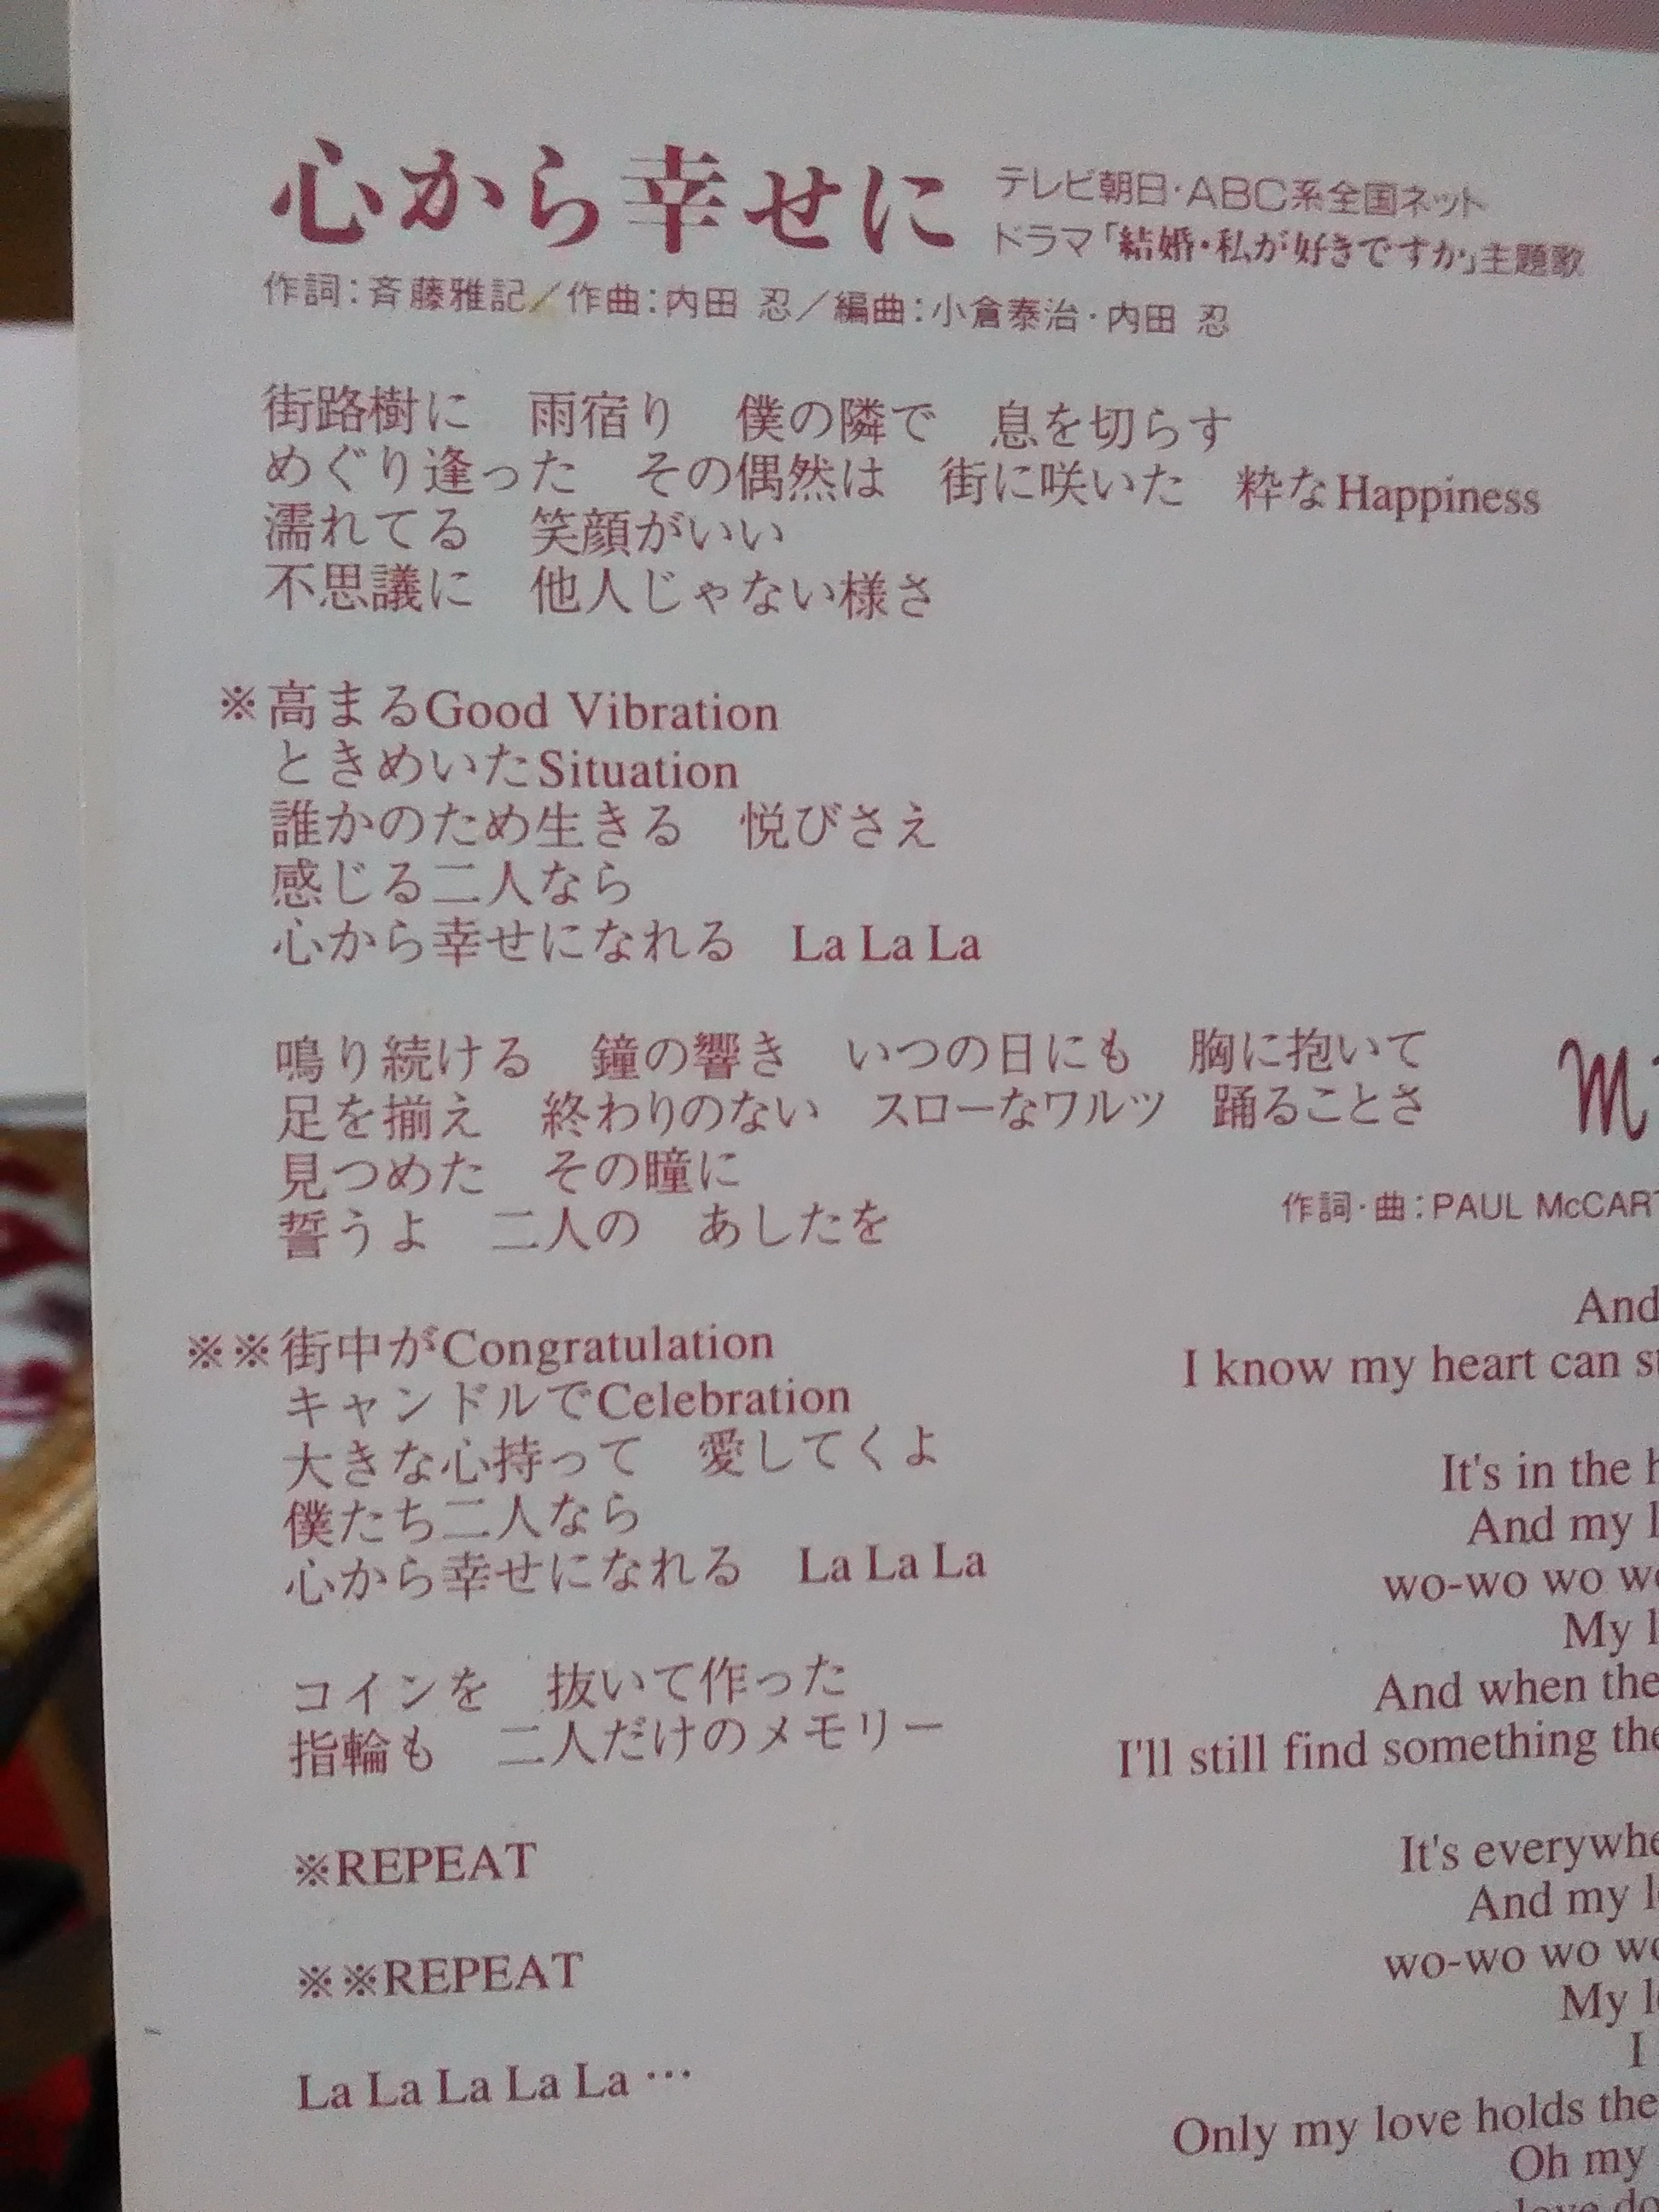 心から幸せに
テレビ朝日・ABC系全国ネット
ドラマ「結婚・私が好きですか」主題歌
作詞：斉藤雅記／作曲：内田 忍／編曲：小倉泰治・内田 忍
街路樹に　雨宿り　僕の隣で　息を切らす
めぐり逢った　その偶然は　街に咲いた　粋なHappiness
濡れてる　笑顔がいい
不思議に　他人じゃない様さ
※高まるGood Vibration
ときめいたSituation
誰かのため生きる　悦びさえ
感じる二人なら
心から幸せになれる　La La La
鳴り続ける　鐘の響き　いつの日にも　胸に抱いて
足を揃え　終わりのない　スローなワルツ　踊ることさ
見つめた　その瞳に
誓うよ　二人の　あしたを
※※街中がCongratulation
キャンドルでCelebration
大きな心持って　愛してくよ
僕たち二人なら
心から幸せになれる　La La La
コインを　抜いて作った
指輪も　二人だけのメモリー
※REPEAT
※※REPEAT
La La La La La …
M
作詞・曲：PAUL McCAR
And
I know my heart can
It's in the
And my
wo-wo wo
My
And when the
I'll still find something
It's
And my
wo-wo wo
My
I
Only my love holds the
Oh my
love